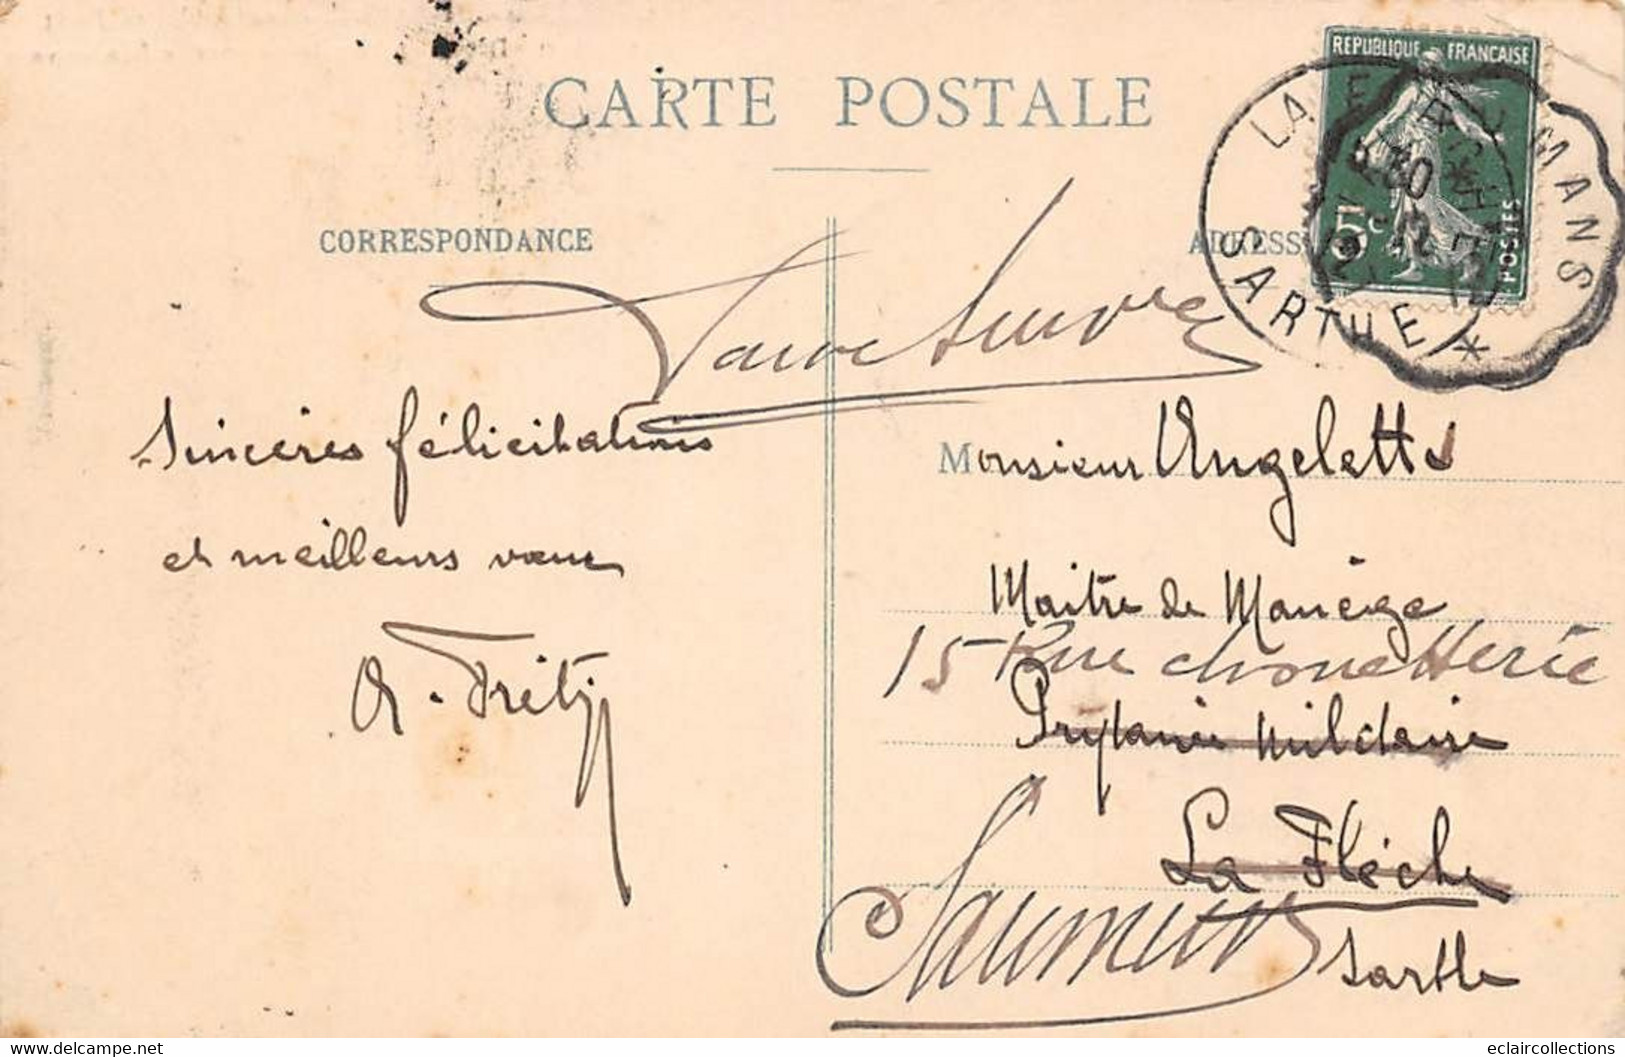 CARTE POSTALE
CORRESPONDANCE
ADRESSE
REPUBLIQUE FRANÇAISE
5c
POSTES
MANS
SARTHE *
faire suivre
Sincères félicitations
et meilleurs vœux
A. Fritz
Monsieur Angeletti
Maitre de Manège
15 Rue chouetterie
Prytanée militaire
La Flèche
Saumur
Sarthe
www.delcampe.net
eclaircollections